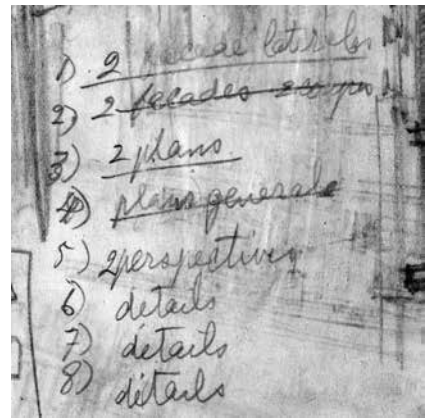 1) 2 facade laterales
2) 2 facades 2 coupes
3) 2 plans
4) plans generale
5) 2 perspectives
6) détails
7) détails
8) détails